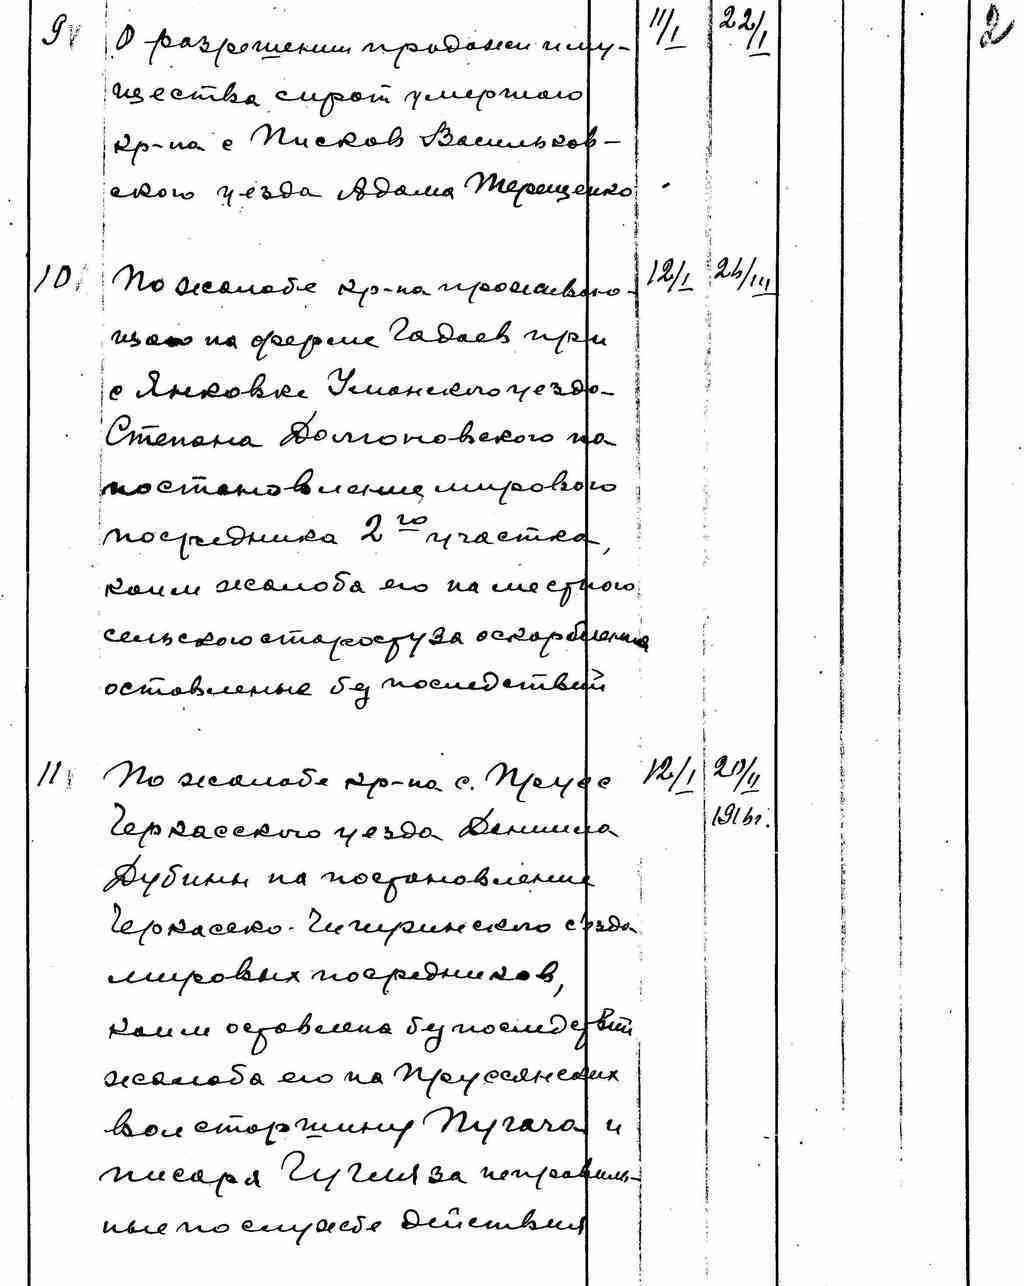 2
9 О разрешении продажи иму- 11/I 22/I
щества сирот умершего
кр-на с Писков Васильков-
ского уезда Адама Терещенко
10 По жалобе кр-на проживаю- 12/I 24/III
щего на ферме Гадаев при
с Янковке Уманского уезда
Степана Долгоновского на
постановление мирового
посредника 2го участка,
коим жалоба его на местного
сельского старосту за оскорбление
оставлены без последствий
11 По жалобе кр-на с. Прусс 12/I 20/II
Черкасского уезда Даниила 1916г.
Дубины на постановление
Черкасско-Чигиринского с'езда
мировых посредников,
коим оставлена без последствий
жалоба его на Пруссянских
вол старшину Пугача и
писаря за неправиль-
ные по службе действия